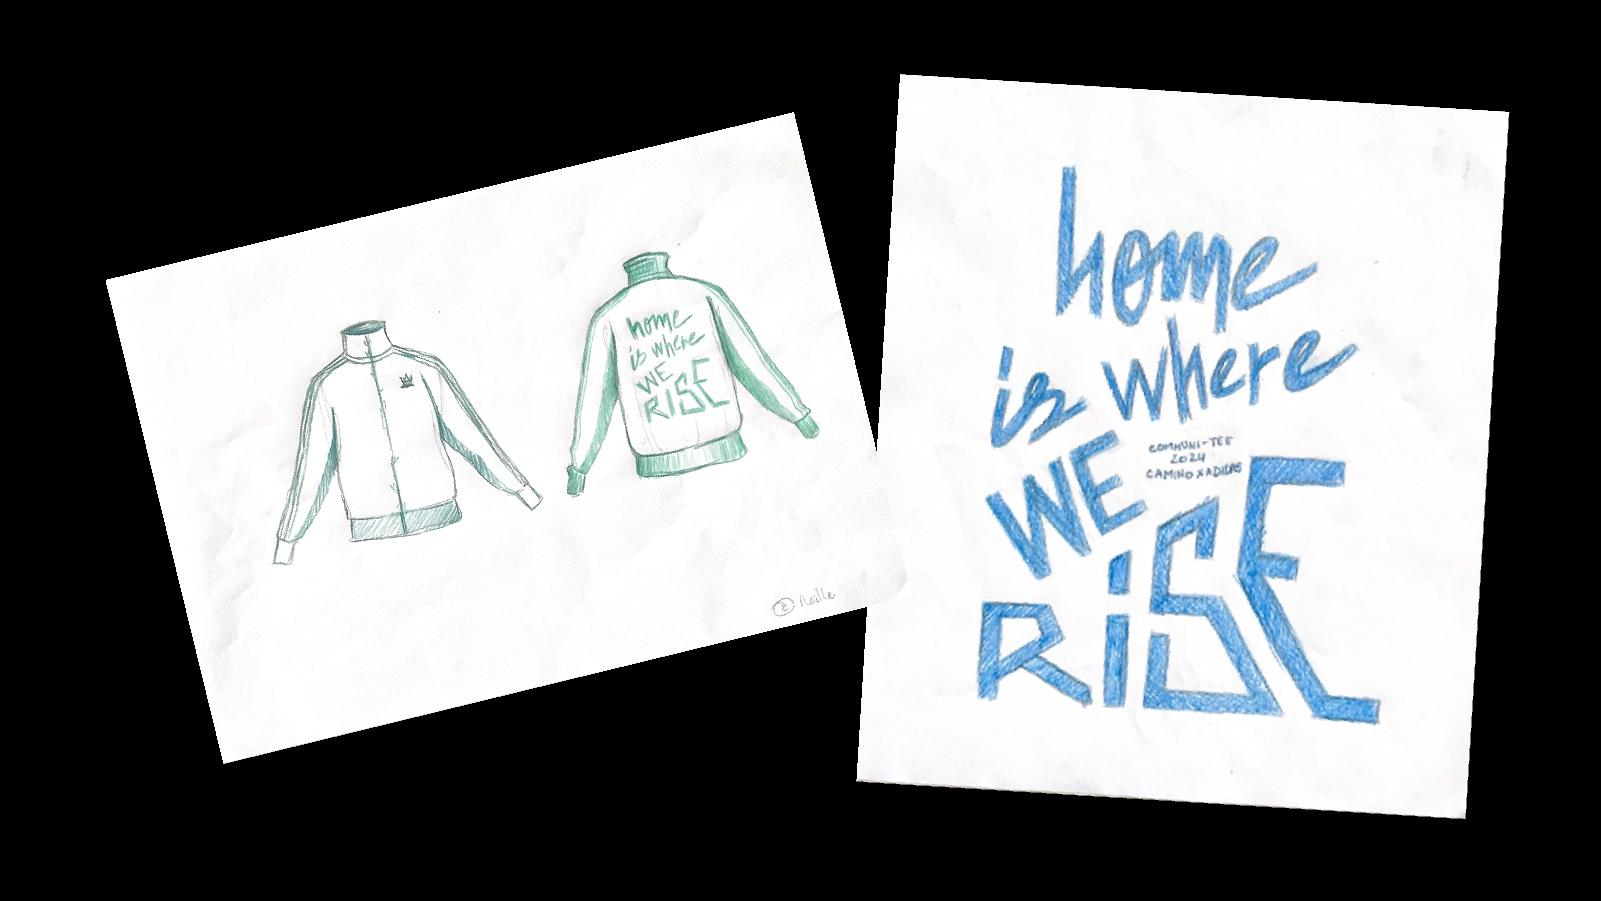 home
is where
WE
RiSE
② Naille
home
is where
WE
COMMUNI-TEE
2024
CAMINO X ADIDAS
RiSE